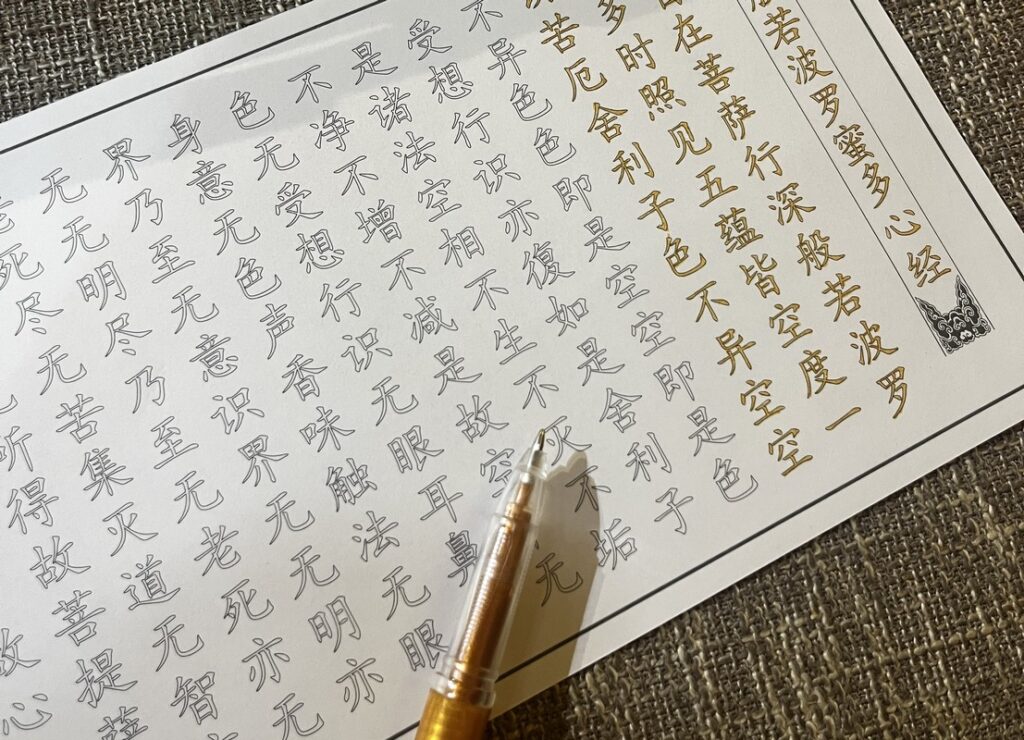 若波罗蜜多心经
在菩萨行深般若波罗
多时照见五蕴皆空度一
苦厄舍利子色不异空空
不异色色即是空空即是色
受想行识亦復如是舍利子
是诸法空相不生不灭不垢
不净不增不减是故空无
色无受想行识无眼耳鼻
身意无色声香味触法无眼
界乃至无意识界无无明亦
无无明尽乃至无老死亦无
死尽无苦集灭道无智
所得故菩提萨
故心